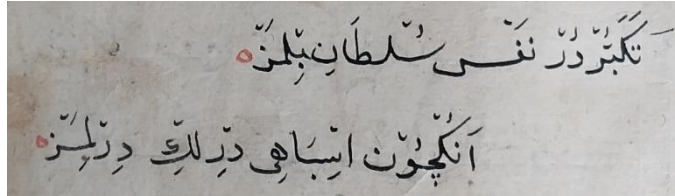 تَكَبُّرْدُرْ نَفَسْ سُلطَانِ بِيِلمَزْ
اَنكِچُونْ اسِبَاهِى دِرِلِكْ دِرِلمِزْ